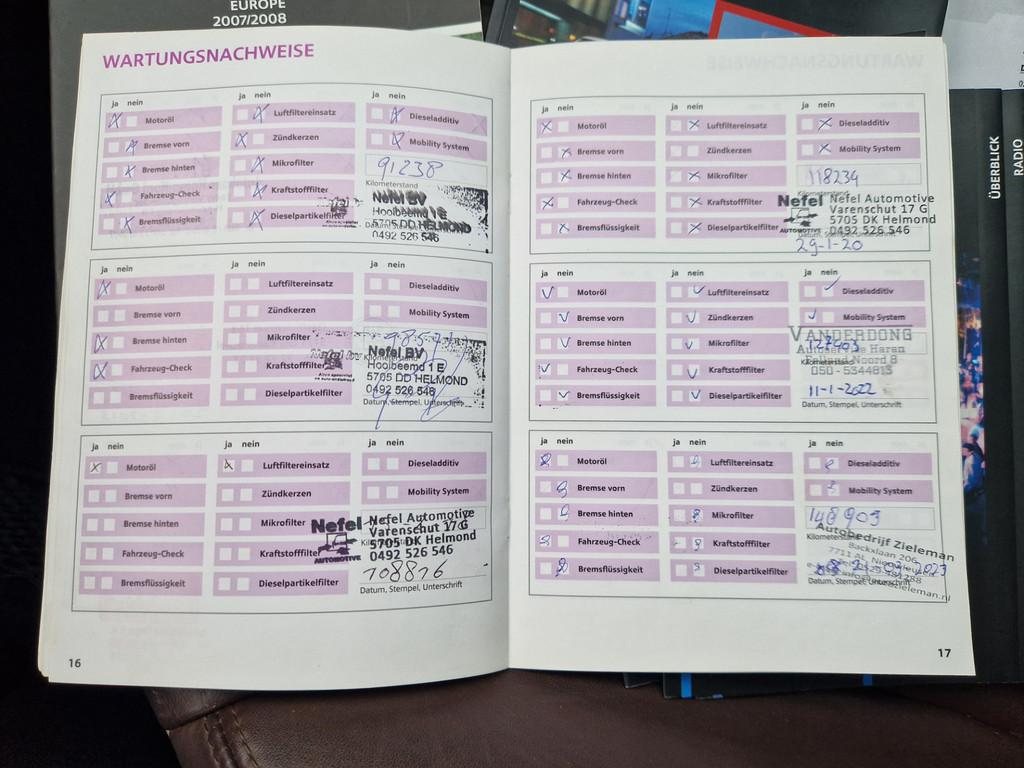 EUROPE
2007/2008
WARTUNGSNACHWEISE
ja nein
Motoröl
Bremse vorn
Bremse hinten
Fahrzeug-Check
Bremsflüssigkeit
Luftfiltereinsatz
Zündkerzen
Mikrofilter
Kraftstofffilter
Dieselpartikelfilter
Dieseladditiv
Mobility System
91238
Kilometerstand
Nefel BV
Hooibeemd 1 E
5705 DD HELMOND
0492 526 546
ja nein
Motoröl
Bremse vorn
Bremse hinten
Fahrzeug-Check
Bremsflüssigkeit
Luftfiltereinsatz
Zündkerzen
Mikrofilter
Kraftstofffilter
Dieselpartikelfilter
Dieseladditiv
Mobility System
Nefel BV
Hooibeemd 1 E
5705 DD HELMOND
0492 526 546
Datum, Stempel, Unterschrift
ja nein
Motoröl
Bremse vorn
Bremse hinten
Fahrzeug-Check
Bremsflüssigkeit
Luftfiltereinsatz
Zündkerzen
Mikrofilter
Kraftstofffilter
Dieselpartikelfilter
Dieseladditiv
Mobility System
Nefel
AUTOMOTIVE
Nefel Automotive
Varenschut 17 G
5705 DK Helmond
0492 526 546
108876
Datum, Stempel, Unterschrift
16
ja nein
Motoröl
Bremse vorn
Bremse hinten
Fahrzeug-Check
Bremsflüssigkeit
Luftfiltereinsatz
Zündkerzen
Mikrofilter
Kraftstofffilter
Dieselpartikelfilter
Dieseladditiv
Mobility System
118234
Nefel
AUTOMOTIVE
Nefel Automotive
Varenschut 17 G
5705 DK Helmond
0492 526 546
29-1-20
ja nein
Motoröl
Bremse vorn
Bremse hinten
Fahrzeug-Check
Bremsflüssigkeit
Luftfiltereinsatz
Zündkerzen
Mikrofilter
Kraftstofffilter
Dieselpartikelfilter
Dieseladditiv
Mobility System
VANDERDONG
Autoservice Haren
Felland Noord 8
050 - 5344813
11-1-2022
Datum, Stempel, Unterschrift
ja nein
Motoröl
Bremse vorn
Bremse hinten
Fahrzeug-Check
Bremsflüssigkeit
Luftfiltereinsatz
Zündkerzen
Mikrofilter
Kraftstofffilter
Dieselpartikelfilter
Dieseladditiv
Mobility System
148903
Autobedrijf Zieleman
Backxlaan 206
2023
17
ÜBERBLICK
RADIO